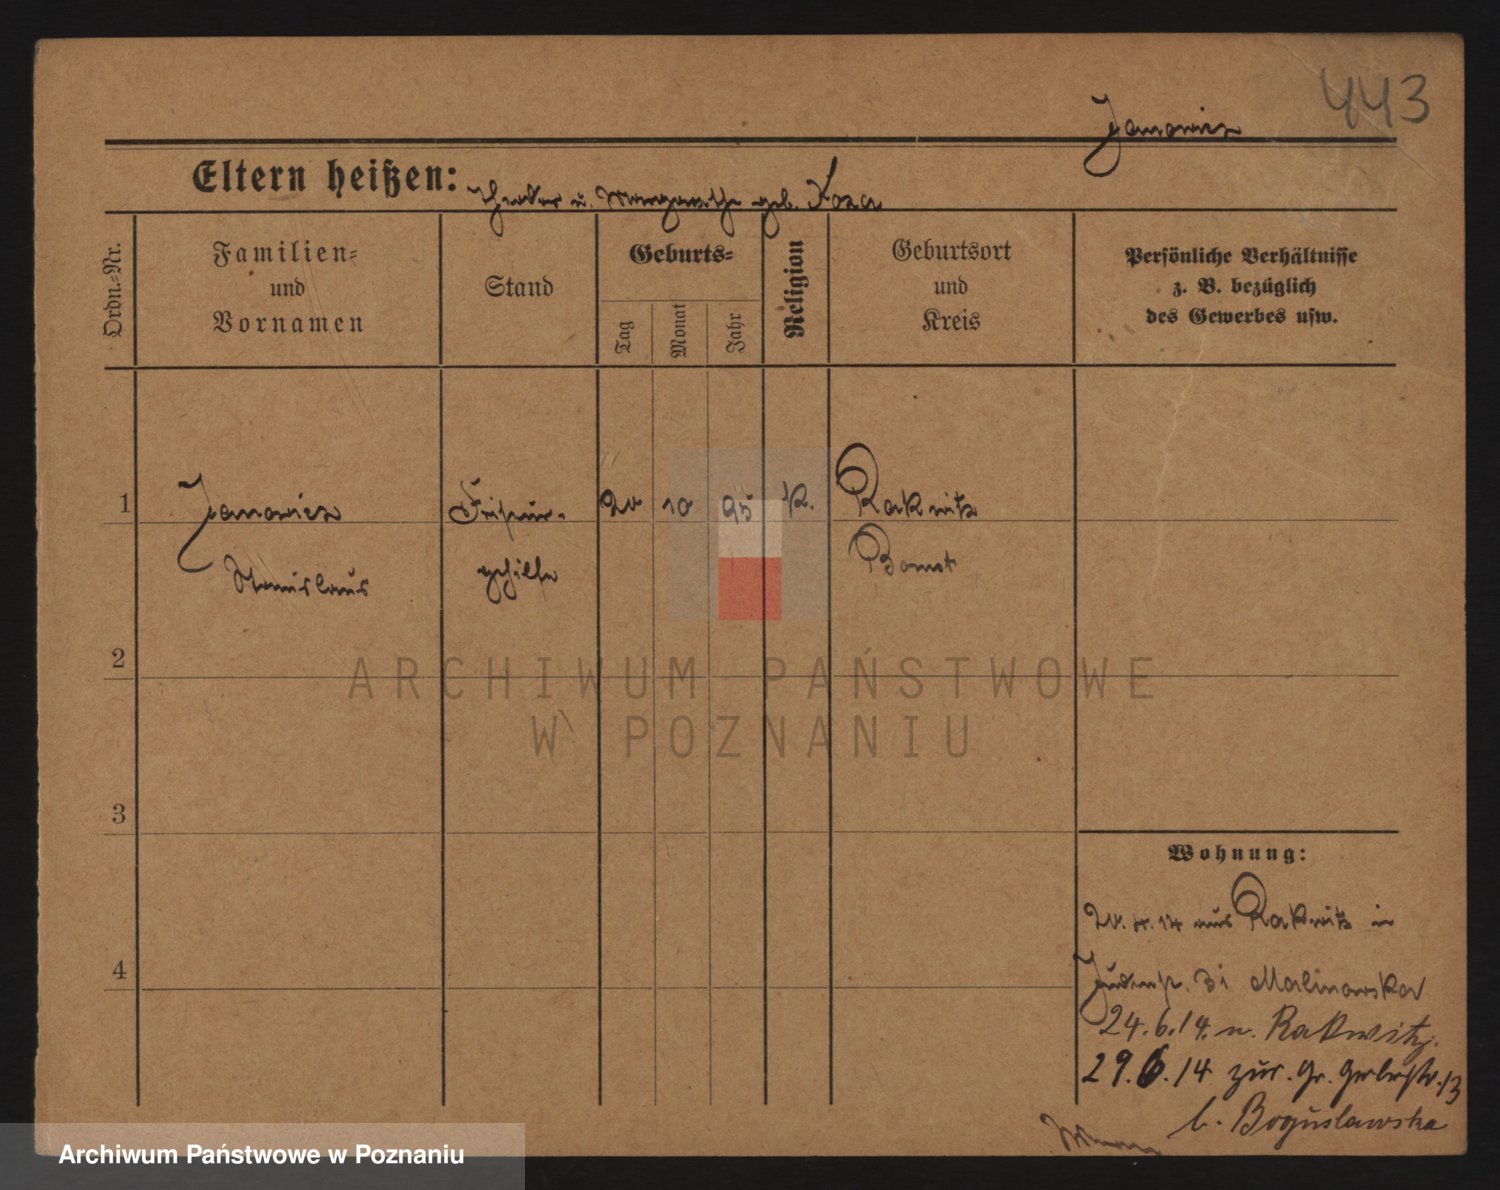 443
Janowicz
Eltern heißen: Theodor u. Margarethe geb. Koza
Ordn.-Nr.
Familien-
und
Vornamen
Stand
Geburts-
Tag
Monat
Jahr
Religion
Geburtsort
und
Kreis
Persönliche Verhältnisse
z. B. bezüglich
des Gewerbes usw.
1
Janowicz
Stanislaus
Friseur-
gehilfe
20
10
95
K.
Rakwitz
Bomst
2
3
4
ARCHIWUM PAŃSTWOWE
W POZNANIU
Wohnung:
aus Rakwitz in
Judenstr. 31 Malinowska
24.6.14. n. Rakwitz.
29.6.14 zur. Gr. Gerberstr. 13
b. Boguslawska
Archiwum Państwowe w Poznaniu